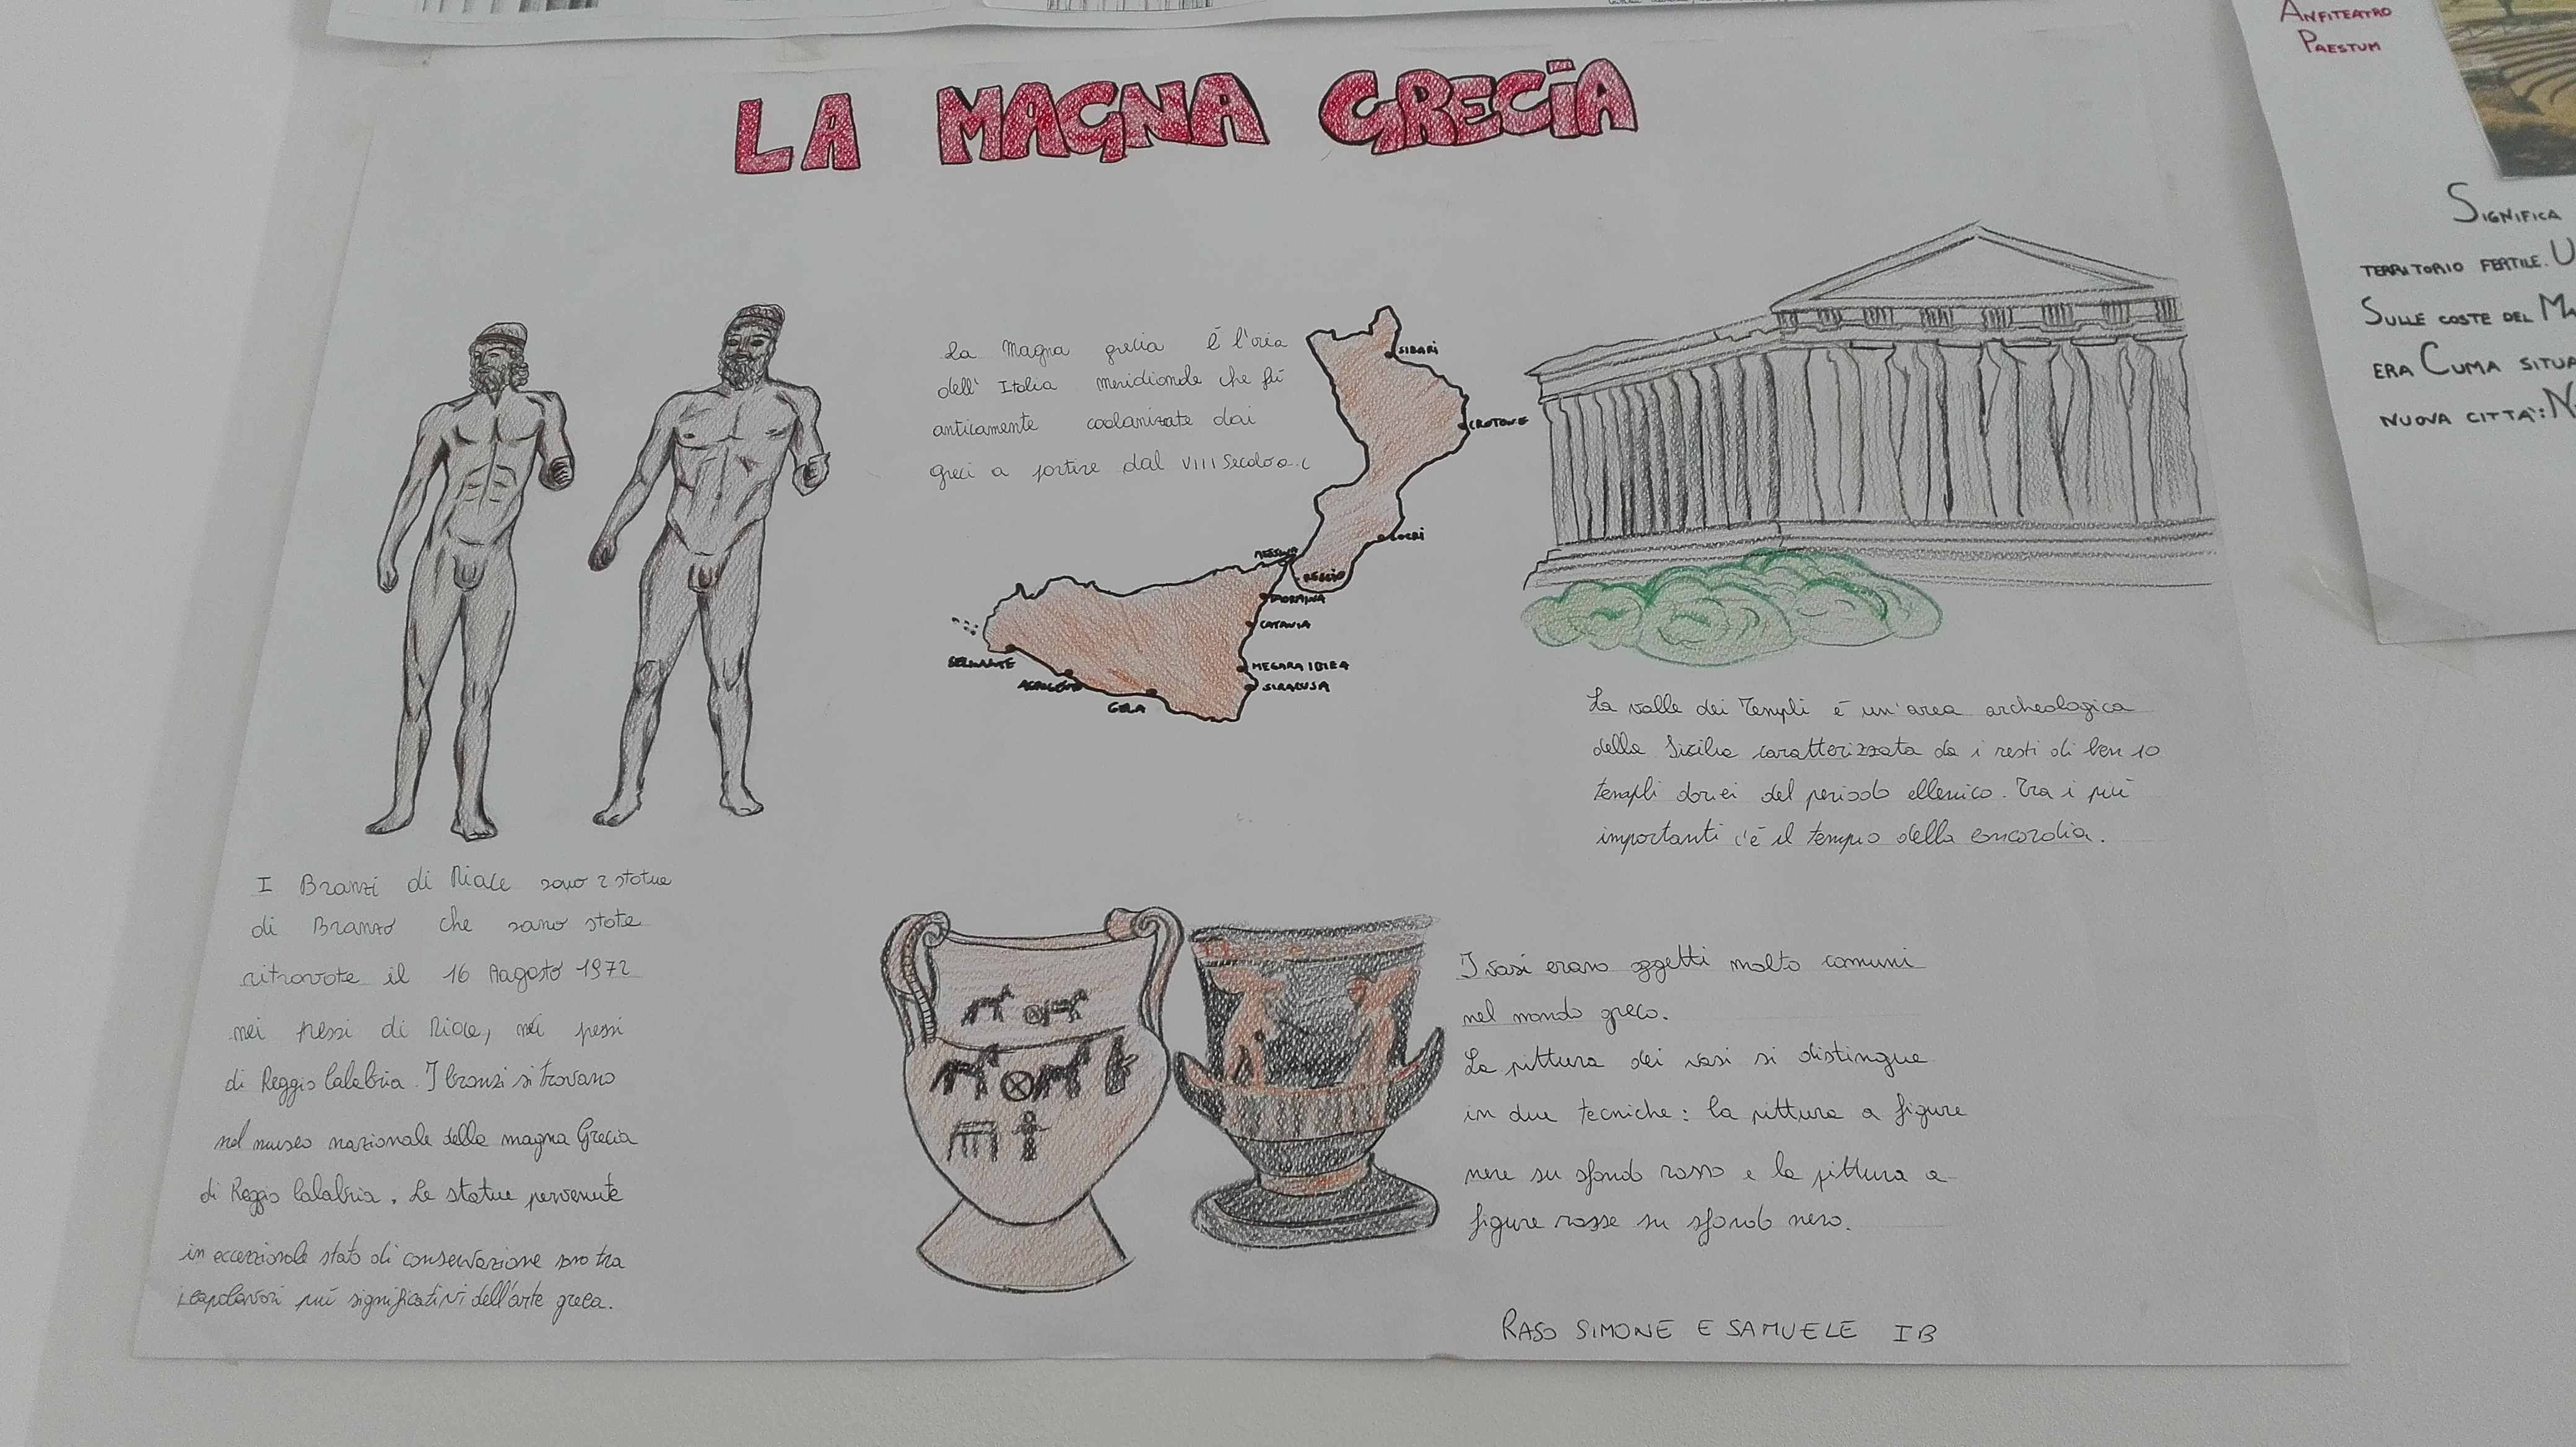 LA MAGNA GRECIA
La Magna grecia è l'aria
dell'Italia meridionale che fù
anticamente coolanizate dai
greci a partire dal VIII Secolo a.c
SIBARI
CROTONE
LOCRI
MESSINA
REGGIO
TAORMINA
CATANIA
MEGARA IBLEA
SIRACUSA
GELA
La valle dei Templi è un'area archeologica
della Sicilia caratterizzata da i resti di ben 10
templi dorici del periodo ellenico. Tra i più
importanti c'è il tempio della concordia.
I Bronzi di Riace sono 2 statue
di Bronzo che sono state
ritrovate il 16 Aagosto 1972
nei pressi di Riace, nei pressi
di Reggio Calabria. I bronzi si trovano
nel museo nazionale della magna Grecia
di Reggio Calabria. Le statue pervenute
in eccezionale stato di conservazione sono tra
i capolavori più significativi dell'arte greca.
I vasi erano oggetti molto comuni
nel mondo greco.
La pittura dei vasi si distingue
in due tecniche: la pittura a figure
nere su sfondo rosso e la pittura a
figure rosse su sfondo nero.
RASO SIMONE E SAMUELE IB
ANFITEATRO
PAESTUM
SIGNIFICA
TERRITORIO FERTILE.
SULLE COSTE DEL
ERA CUMA
NUOVA CITTÀ: